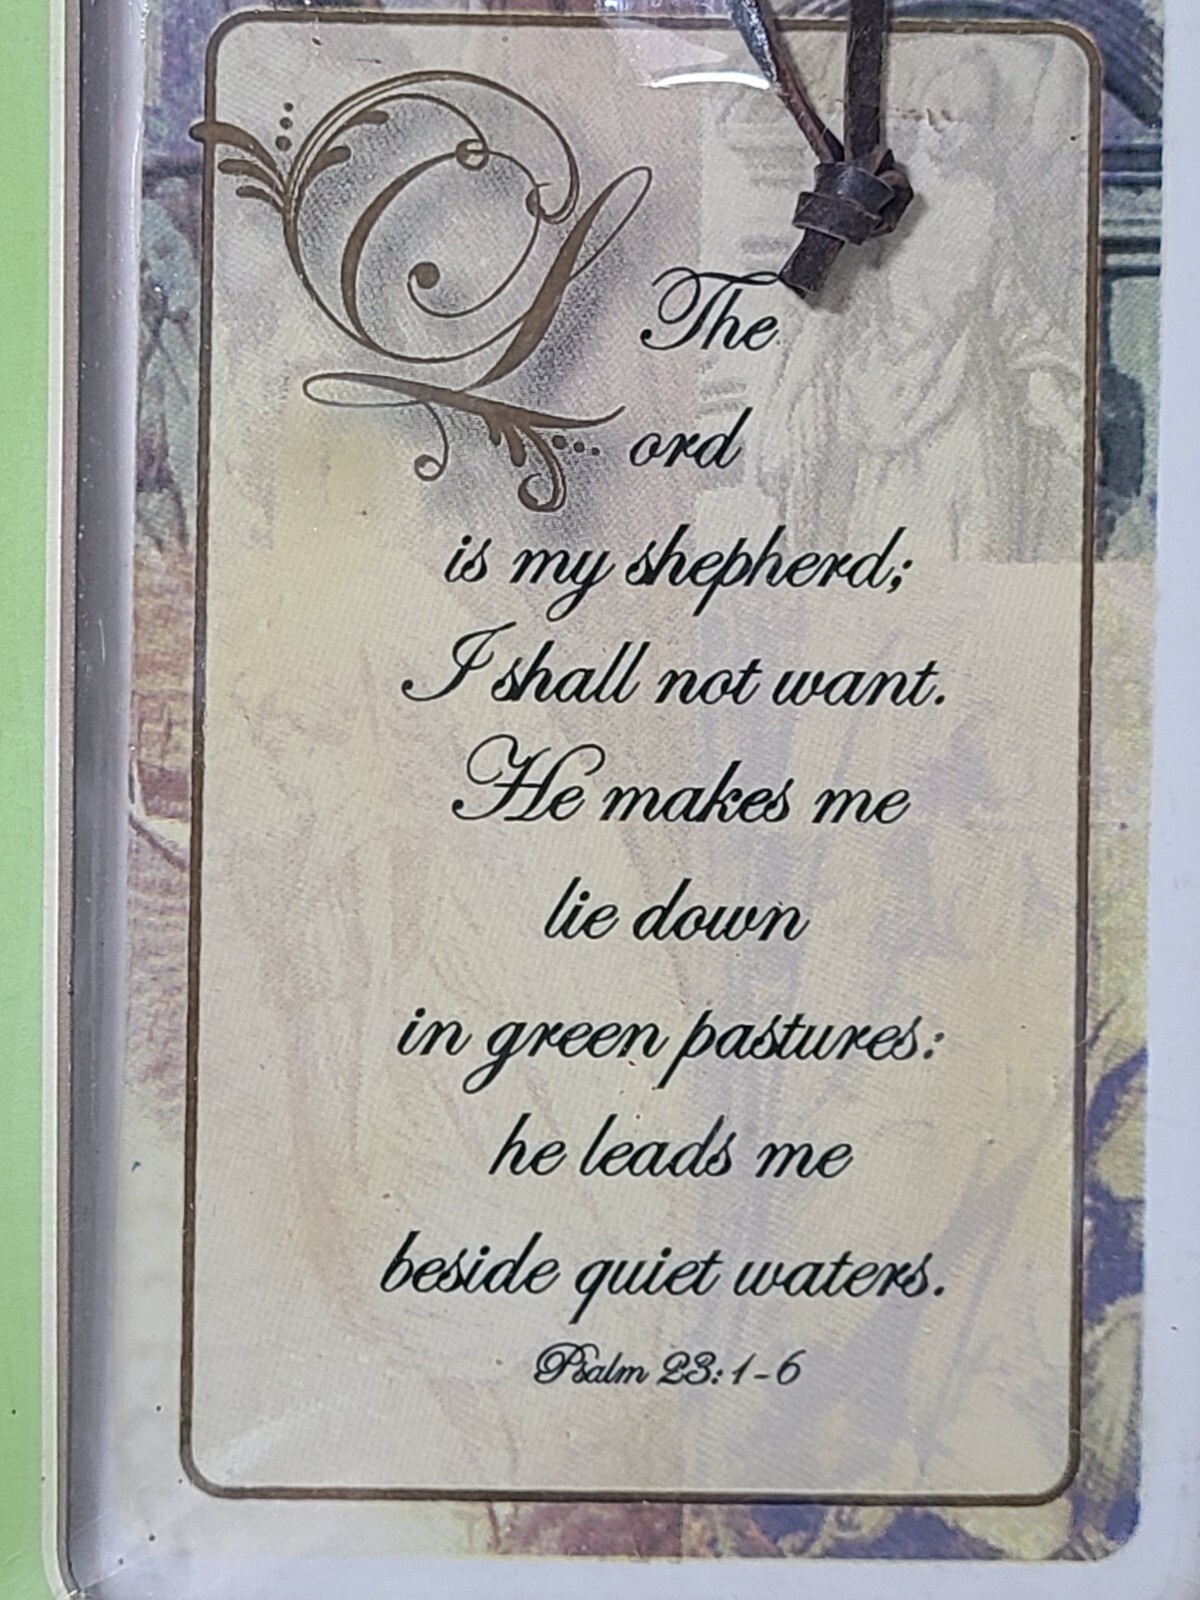 The
Lord
is my shepherd;
I shall not want.
He makes me
lie down
in green pastures:
he leads me
beside quiet waters.
Psalm 23:1-6